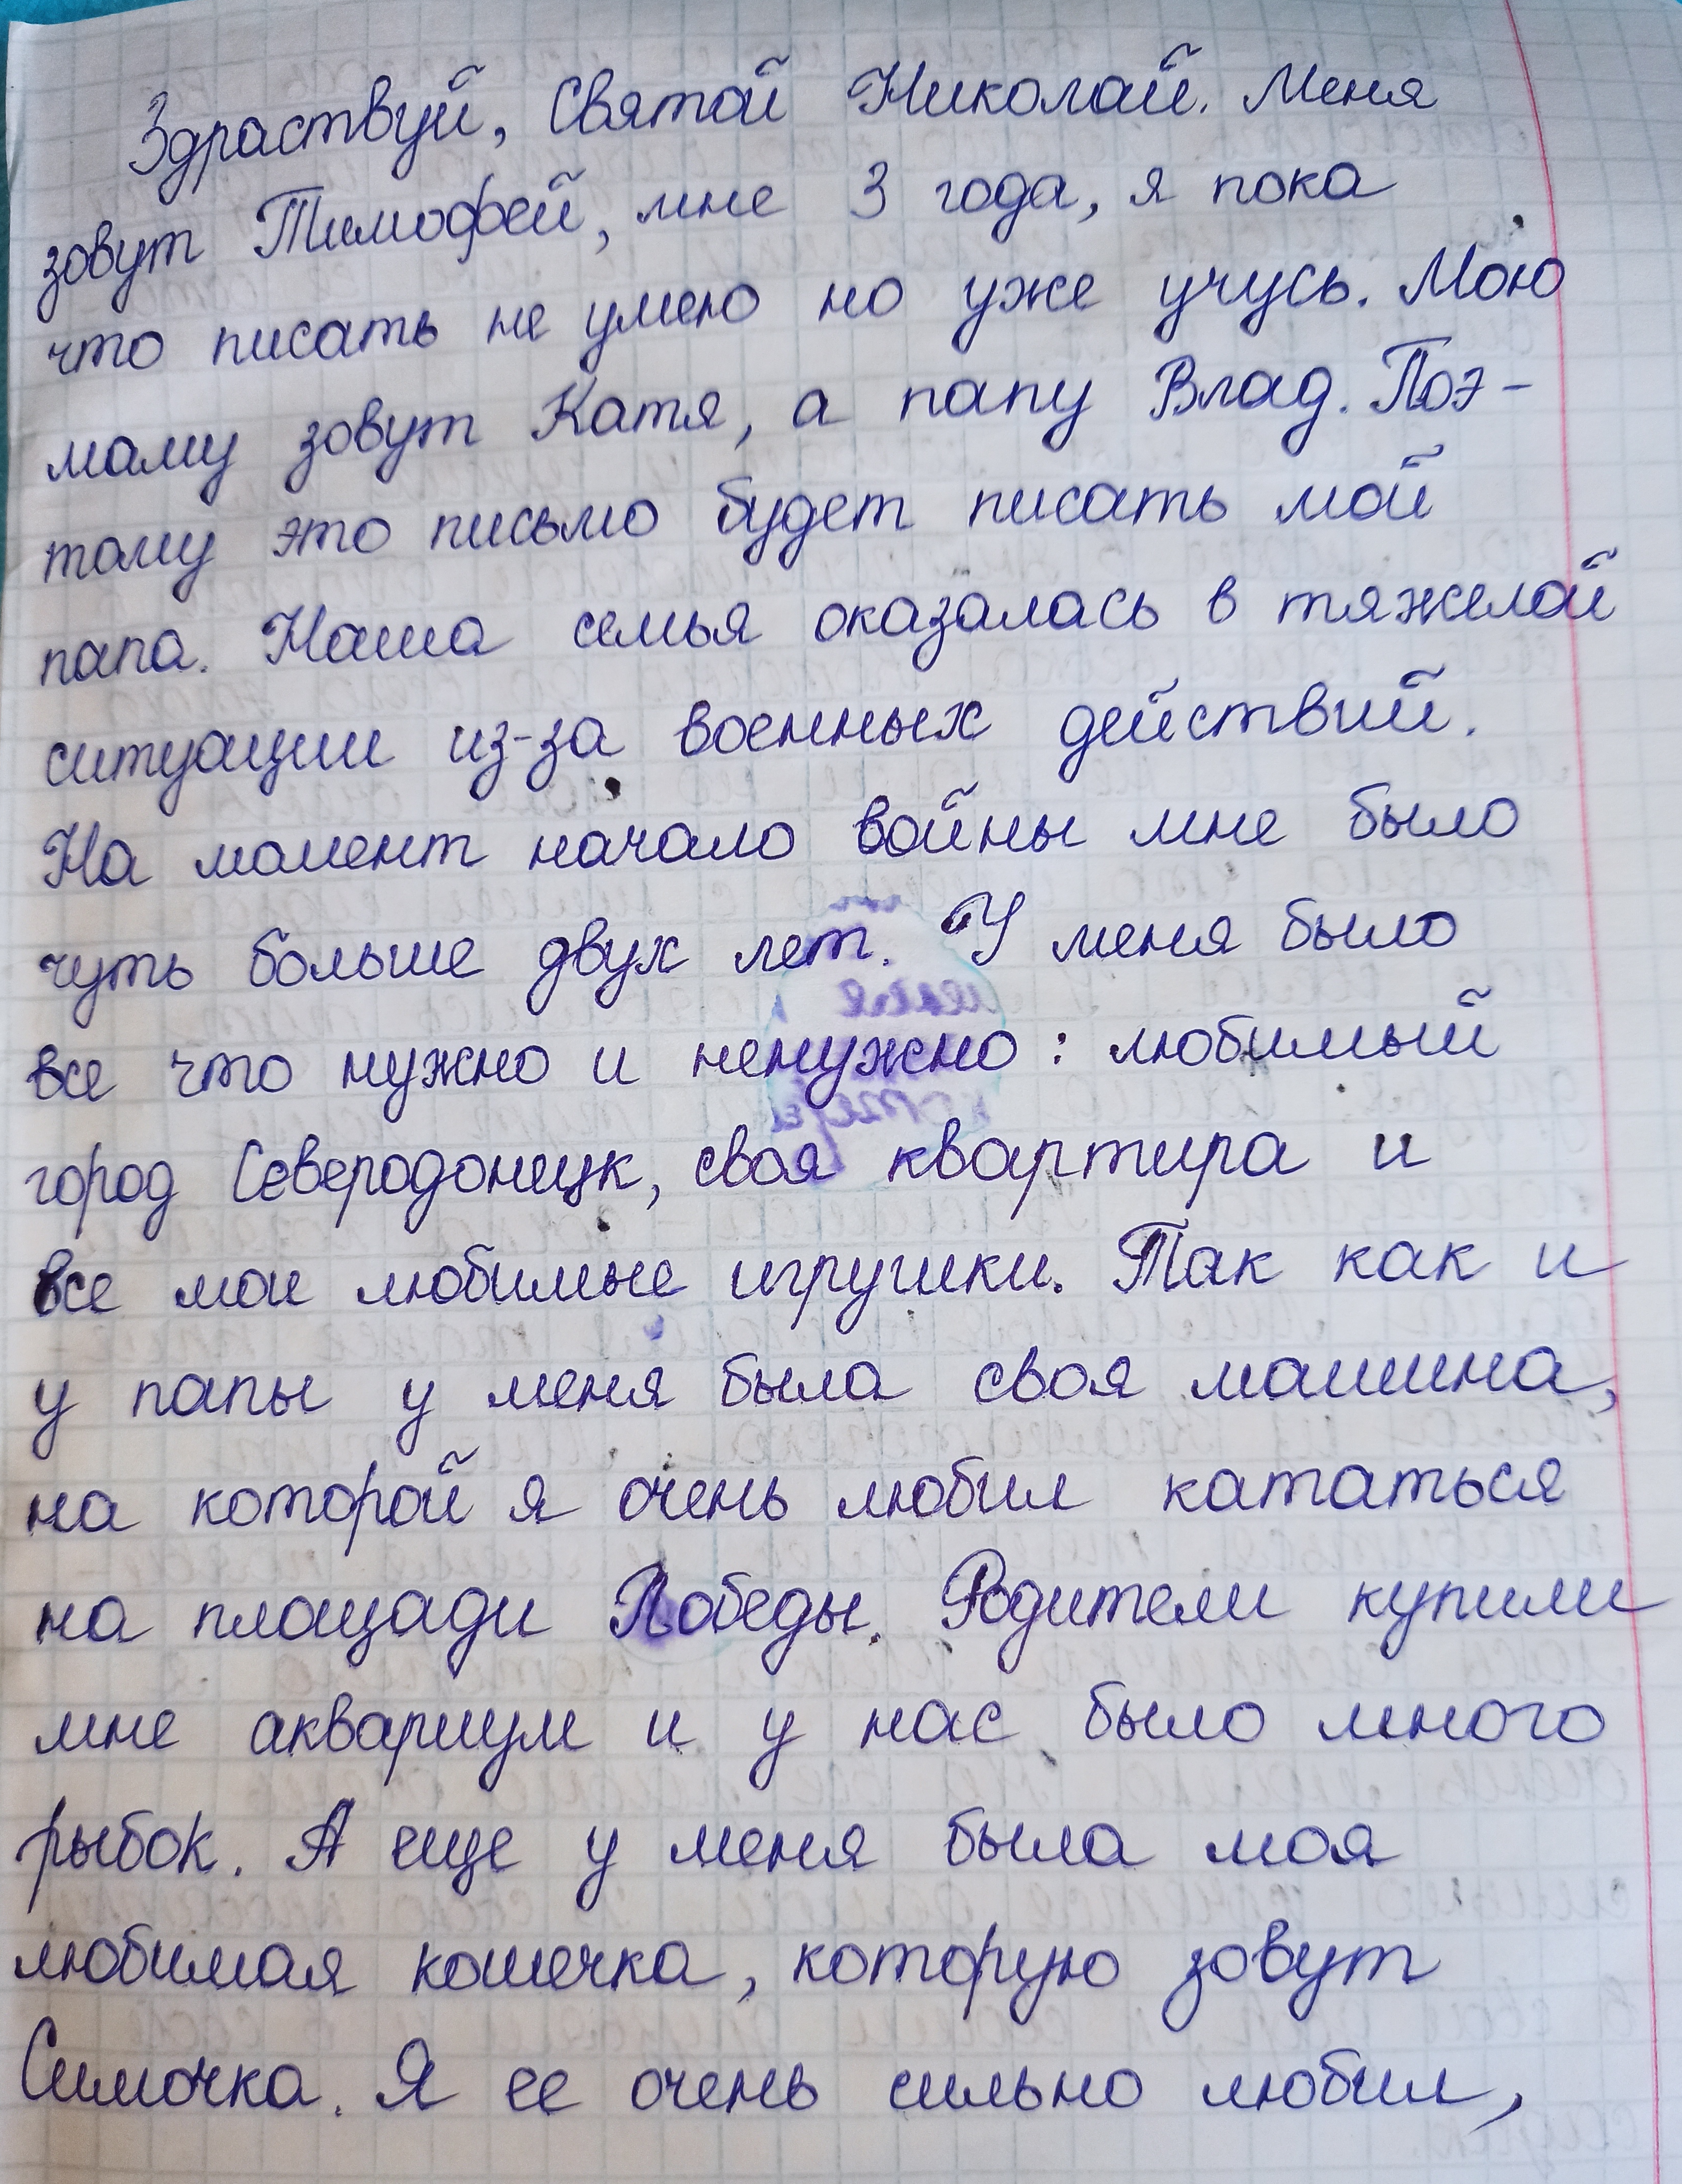 Здраствуй, Святой Николай. Меня
зовут Тимофей, мне 3 года, я пока
что писать не умею но уже учусь. Мою
маму зовут Катя, а папу Влад. Поэ-
тому это письмо будет писать мой
папа. Наша семья оказалась в тяжелой
ситуации из-за военных действий.
На момент начало войны мне было
чуть больше двух лет. У меня было
все что нужно и ненужно: любимый
город Северодонецк, своя квартира и
все мои любимые игрушки. Так как и
у папы у меня была своя машина,
на которой я очень любил кататься
на площади Победы. Родители купили
мне аквариум и у нас было много
рыбок. А еще у меня была моя
любимая кошечка, которую зовут
Симочка. Я ее очень сильно любил,